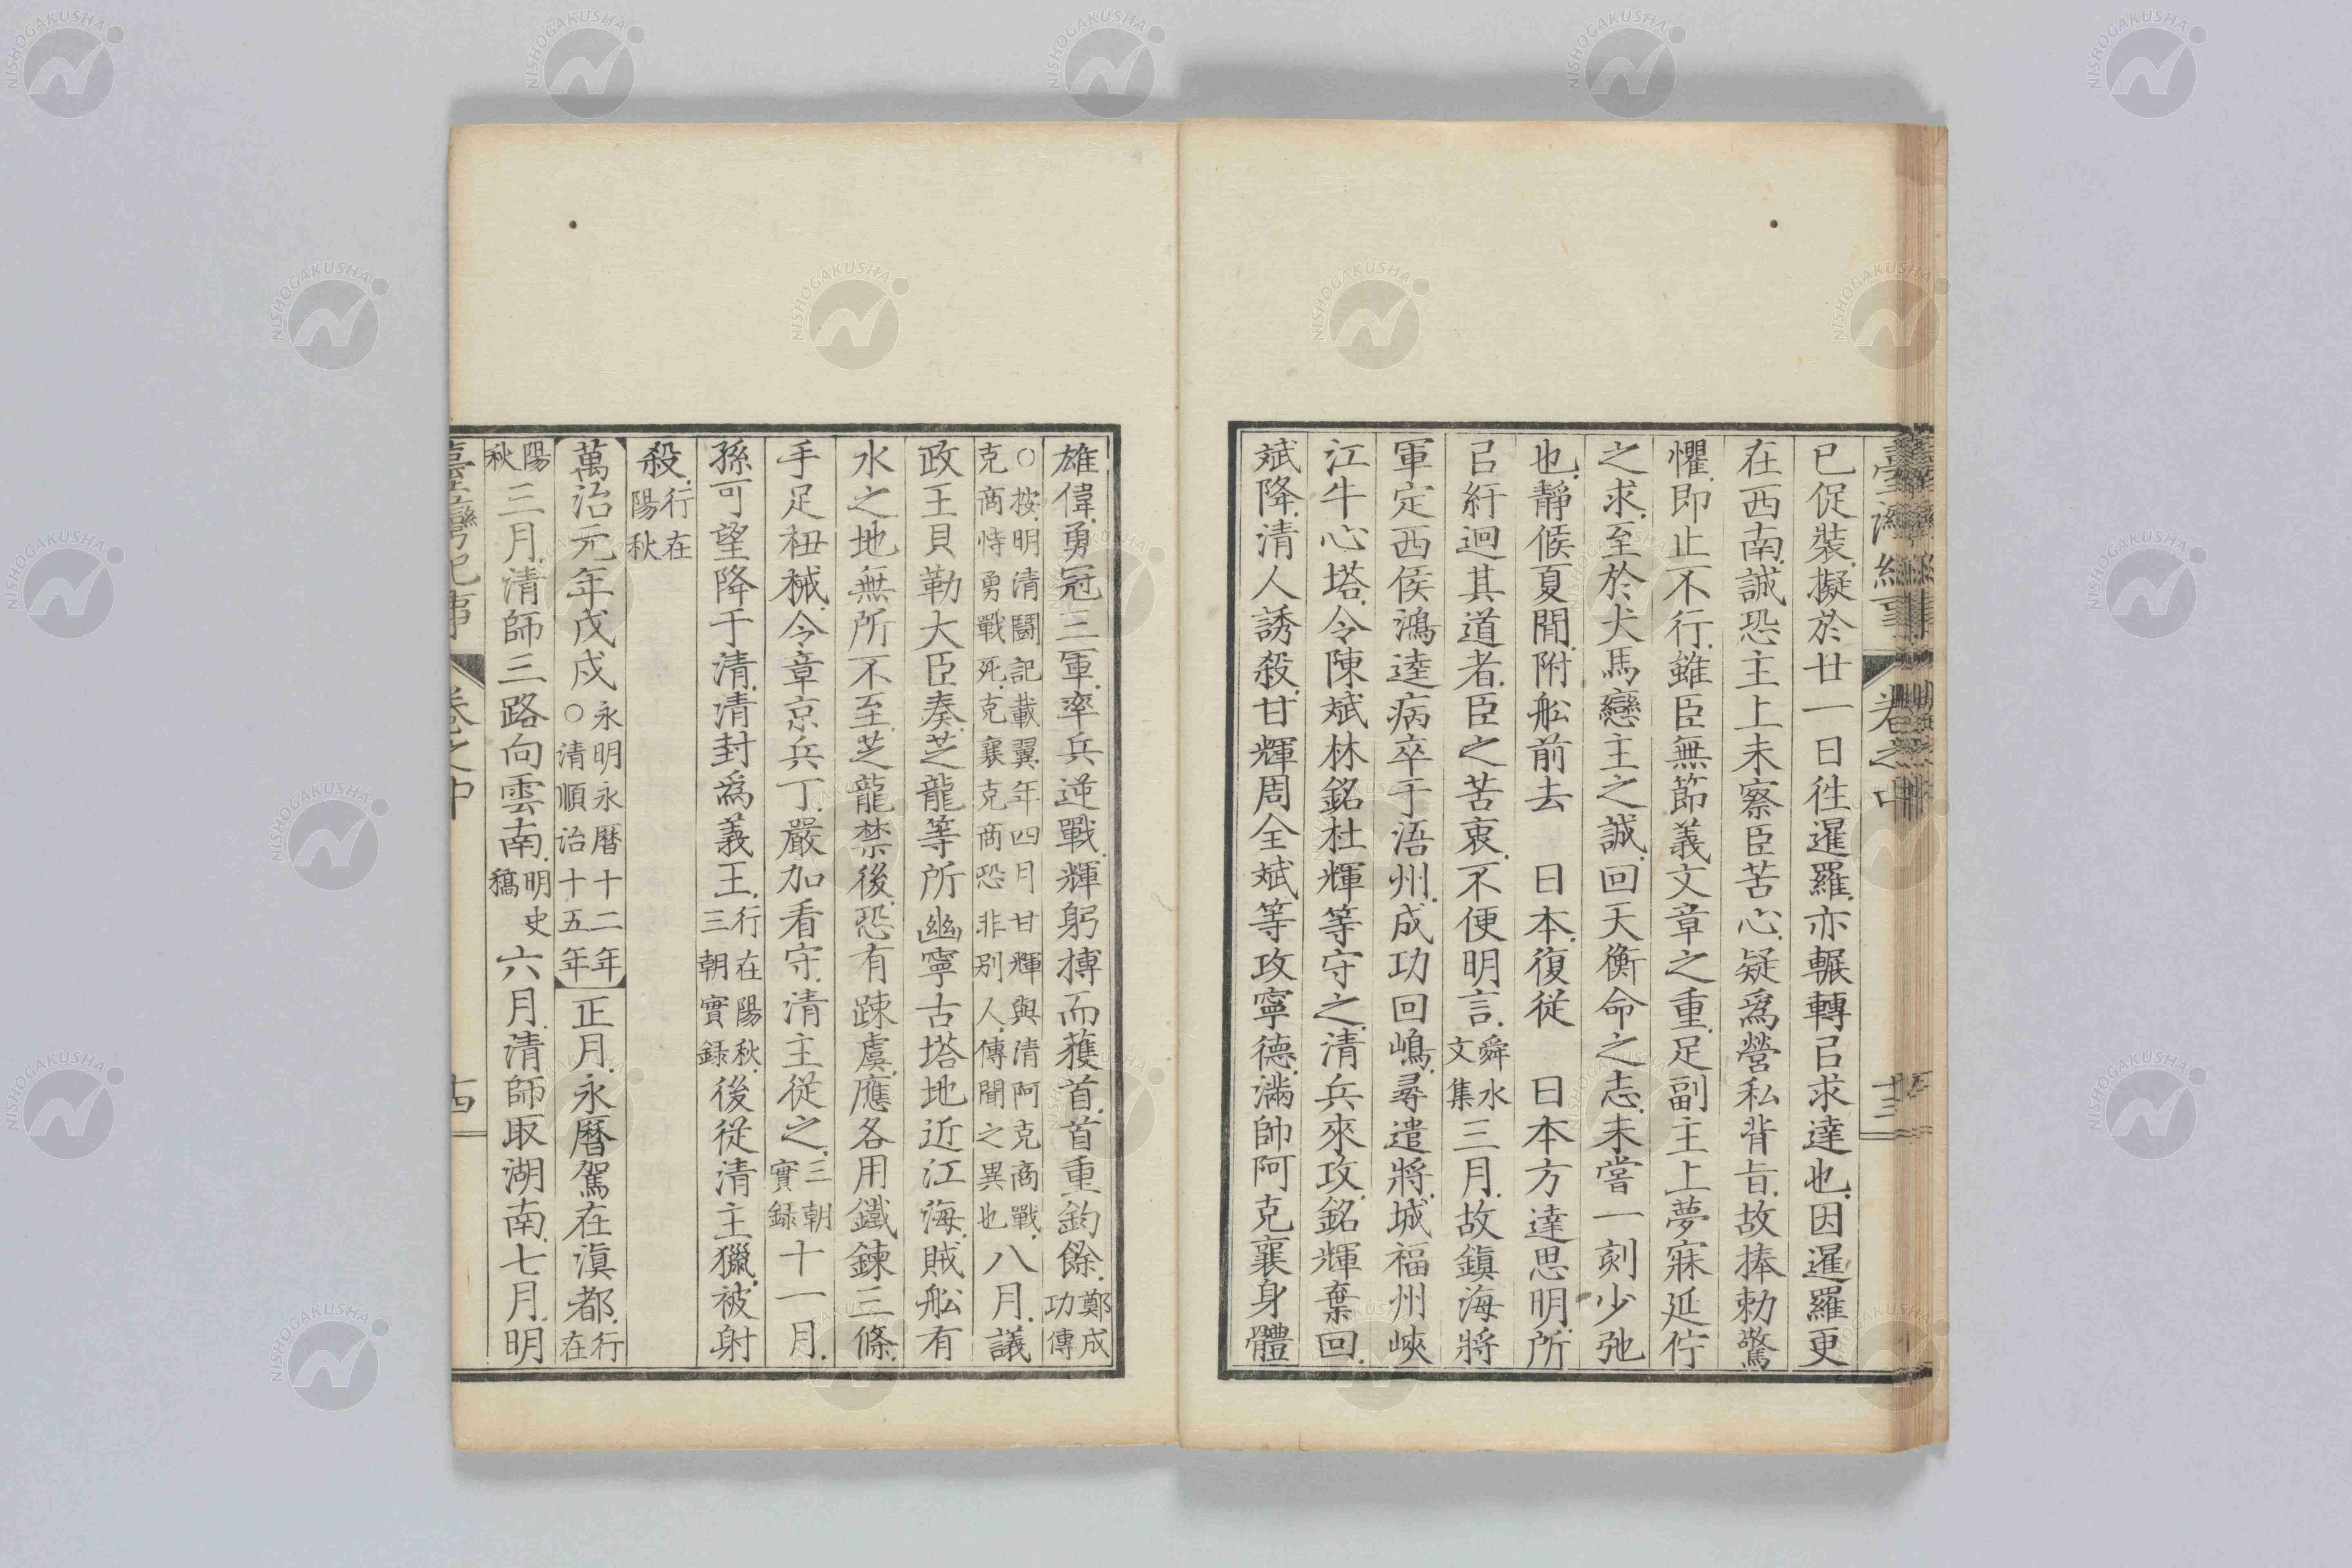 已促裝.擬於廿一日徃暹羅.亦輾轉㠯求達也.因暹羅更
在西南.誠恐主上未察臣苦心.疑爲營私背旨.故捧勅驚
懼.即止不行.雖臣無節義文章之重.足副主上夢寐延佇
之求.至於犬馬戀主之誠.回天衡命之志.未嘗一刻少弛
也.靜候夏間.附舩前去 日本.復從 日本方達思明.所
㠯紆迴其道者.臣之苦衷.不便明言.舜水文集三月.故鎭海將
軍定西侯鴻逵病卒于浯州.成功回嶋.尋遣將.城福州峽
江牛心塔.令陳斌林銘杜輝等守之.清兵來攻.銘輝棄回.
斌降.清人誘殺.甘輝周全斌等攻寧德.滿帥阿克襄身體
雄偉.勇冠三軍.率兵逆戰.輝躬摶而獲首.首重鈞餘.鄭成功傳
○按.明清鬪記載翼年四月甘輝與清阿克商戰.克商恃勇戰死.克襄克商恐非別人.傳聞之異也.八月.議
政王貝勒大臣奏.芝龍等所幽寧古塔地近江海.賊舩有
水之地無所不至.芝龍禁後.恐有踈虞.應各用鐵鍊三條.
手足杻械.令章京兵丁.嚴加看守.清主從之.三朝實録十一月.
孫可望降于清.清封爲義王.行在陽秋.三朝實録後從清主獵.被射
殺.行在陽秋
萬治元年戊戌永明永曆十二年○清順治十五年正月.永曆駕在滇都.行在
陽秋三月.清師三路向雲南.明史稿六月.清師取湖南.七月.明
臺灣紀事 卷之中 十三
臺灣紀事 卷之中 十四
NISHOGAKUSHA